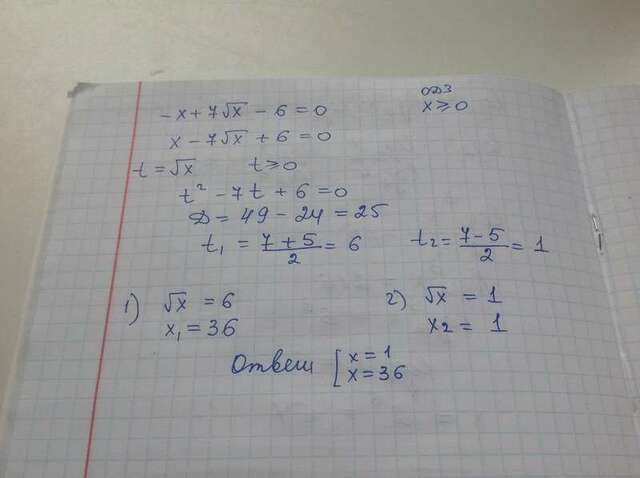 -x+7√x - 6=0
ОДЗ
x≥0
x-7√x+6=0
t=√x t≥0
t²-7t+6=0
D=49-24=25
t₁=(7+5)/2=6 t₂=(7-5)/2=1
1) √x=6 2) √x=1
x₁=36 x₂=1
Ответ [x=1
x=36